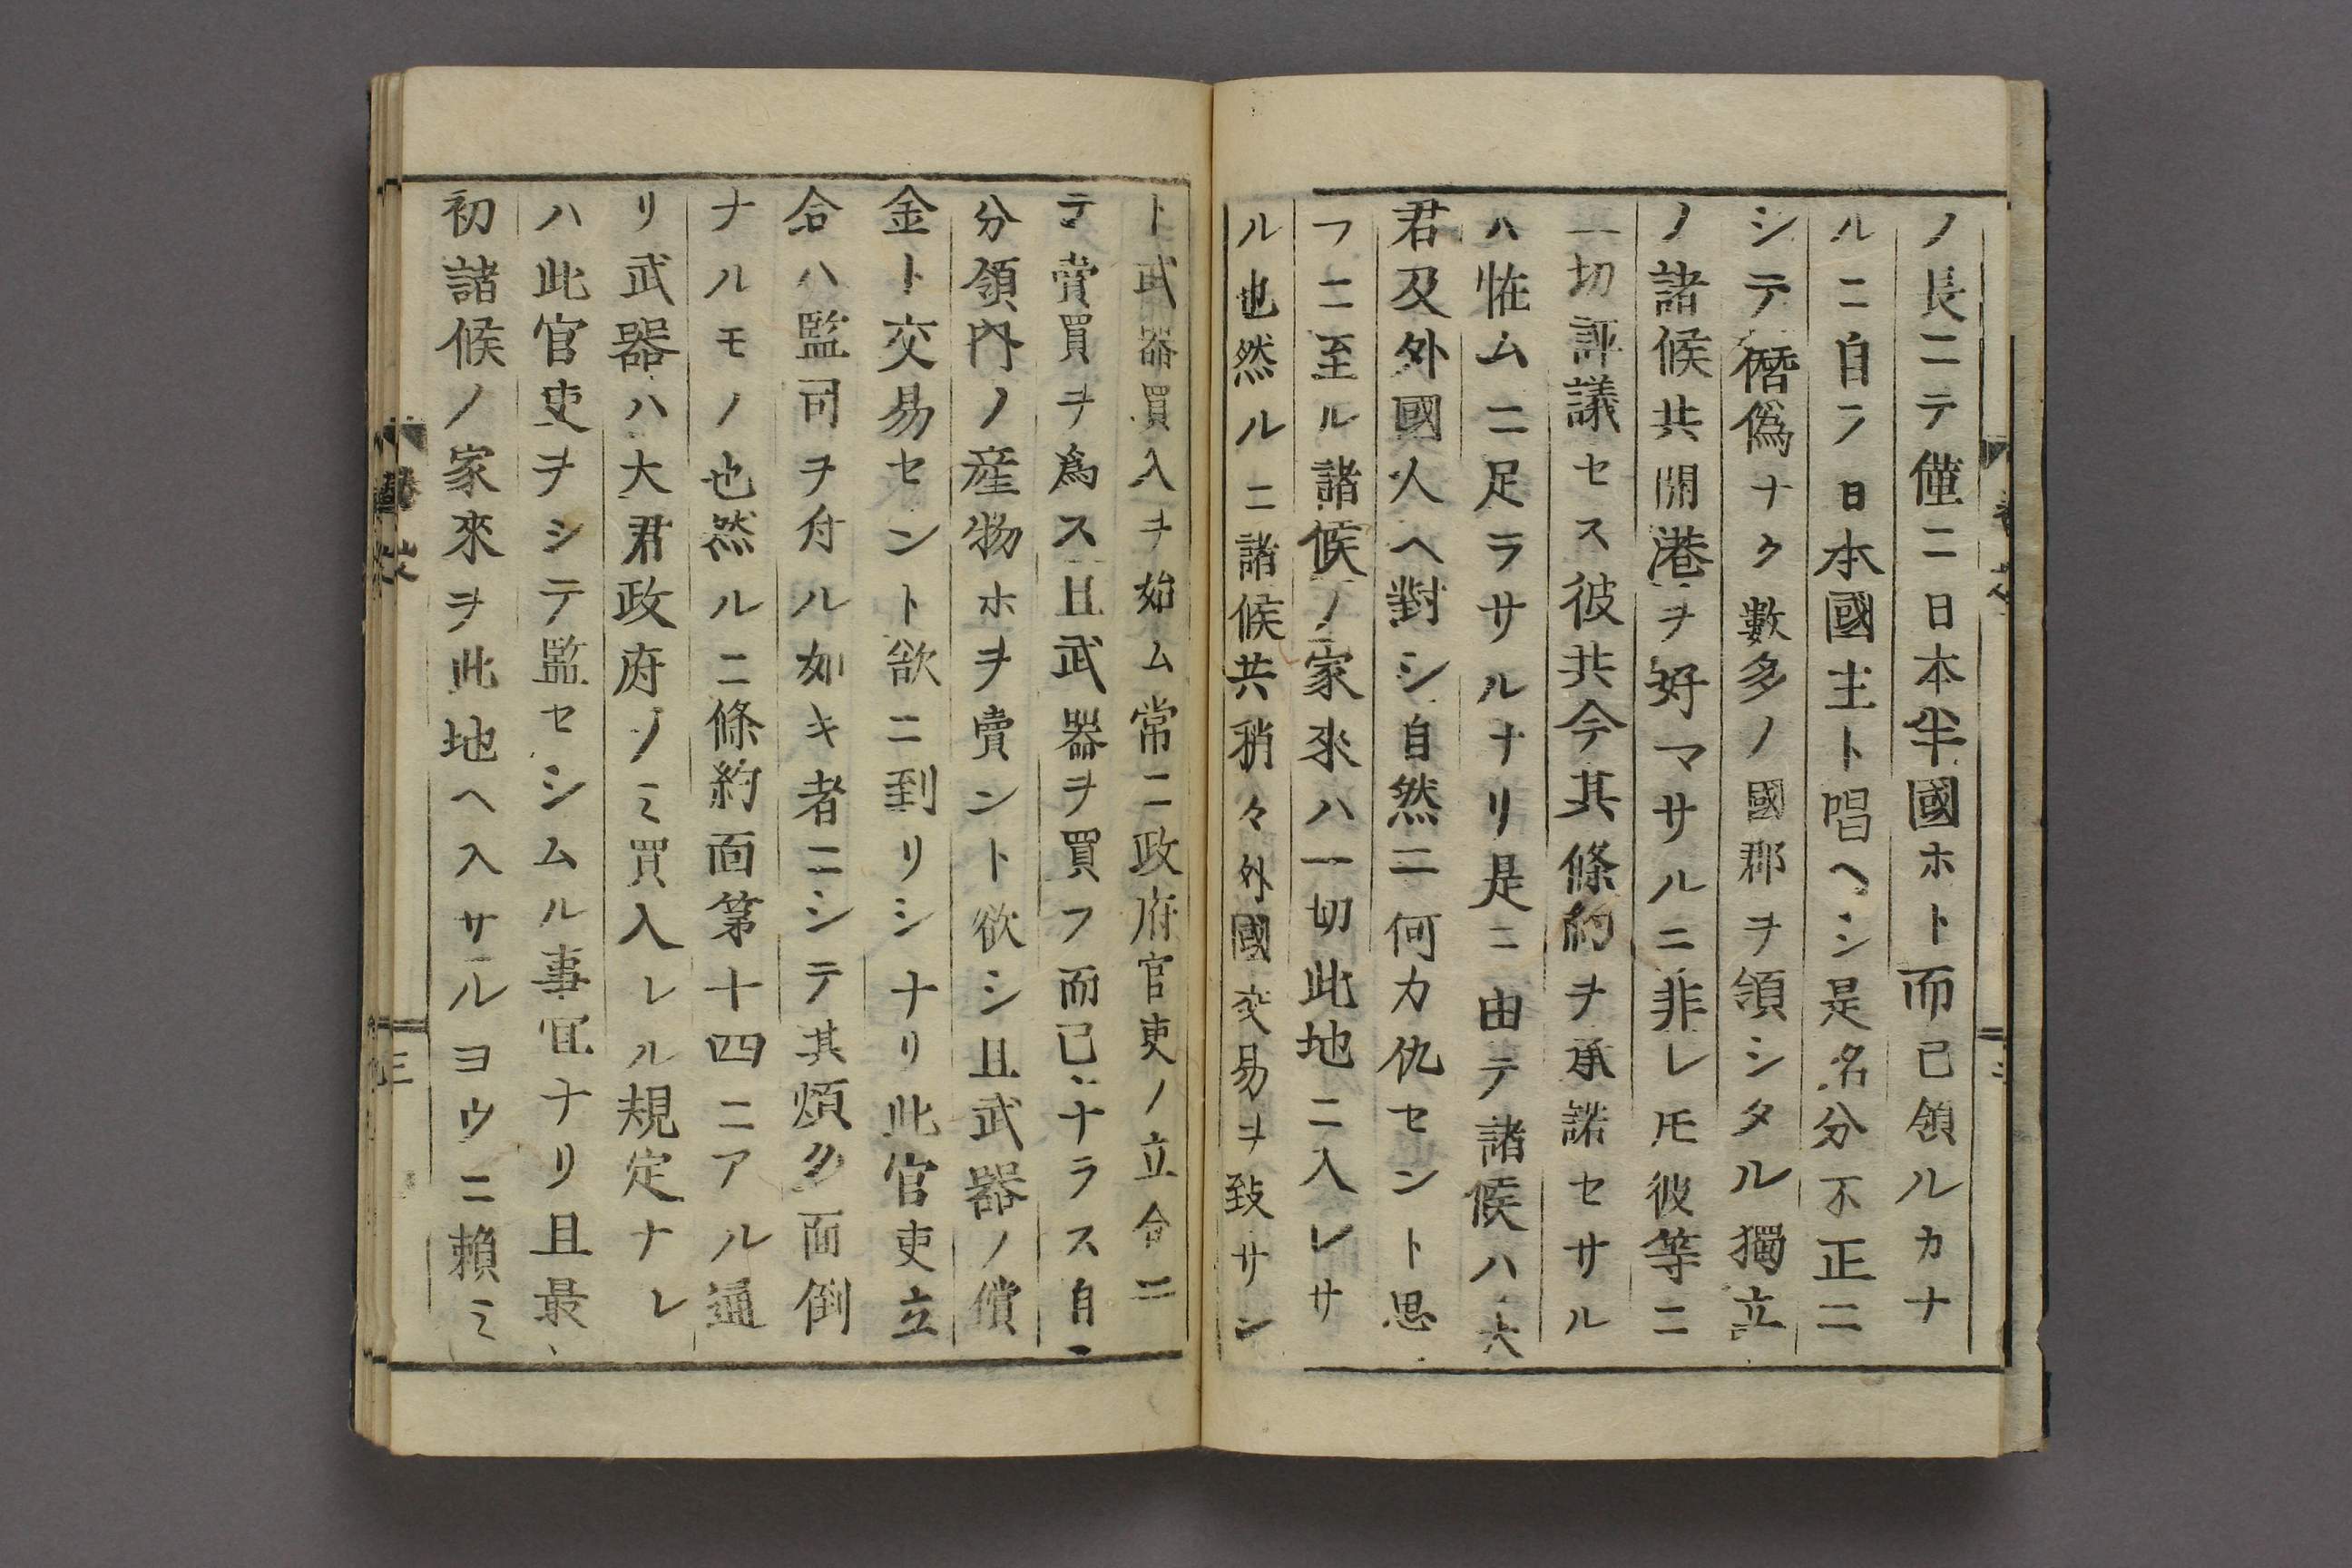 ノ長ニテ僅ニ日本半國ホト而已領ルカナ
ルニ自ラ日本國主ト唱ヘシ是名分不正ニ
シテ僭偽ナク數多ノ國郡ヲ領シタル獨立
ノ諸候共開港ヲ好マサルニ非レ𪜈彼等ニ
一切評議セス彼共今其條約ヲ承諾セサル
ハ恠ムニ足ラサルナリ是ニ由テ諸候ハ大
君及外國人ヘ對シ自然ニ何カ仇セント思
フニ至ル諸候ノ家來ハ一切此地ニ入レサ
ル也然ルニ諸候共稍々外國交易ヲ致サン
ト武器買入ヲ始ム常ニ政府官吏ノ立合ニ
テ賣買ヲ爲ス且武器ヲ買フ而已ナラス自
分領内ノ産物ホヲ賣ント欲シ且武器ノ償
金ト交易セント欲ニ到リシナリ此官吏立
合ハ監司ヲ付ル如キ者ニシテ其煩多面倒
ナルモノ也然ルニ條約面第十四ニアル通
リ武器ハ大君政府ノミ買入レル規定ナレ
ハ此官吏ヲシテ監セシムル事宜ナリ且最
初諸候ノ家來ヲ此地ヘ入サルヨウニ頼ミ
三